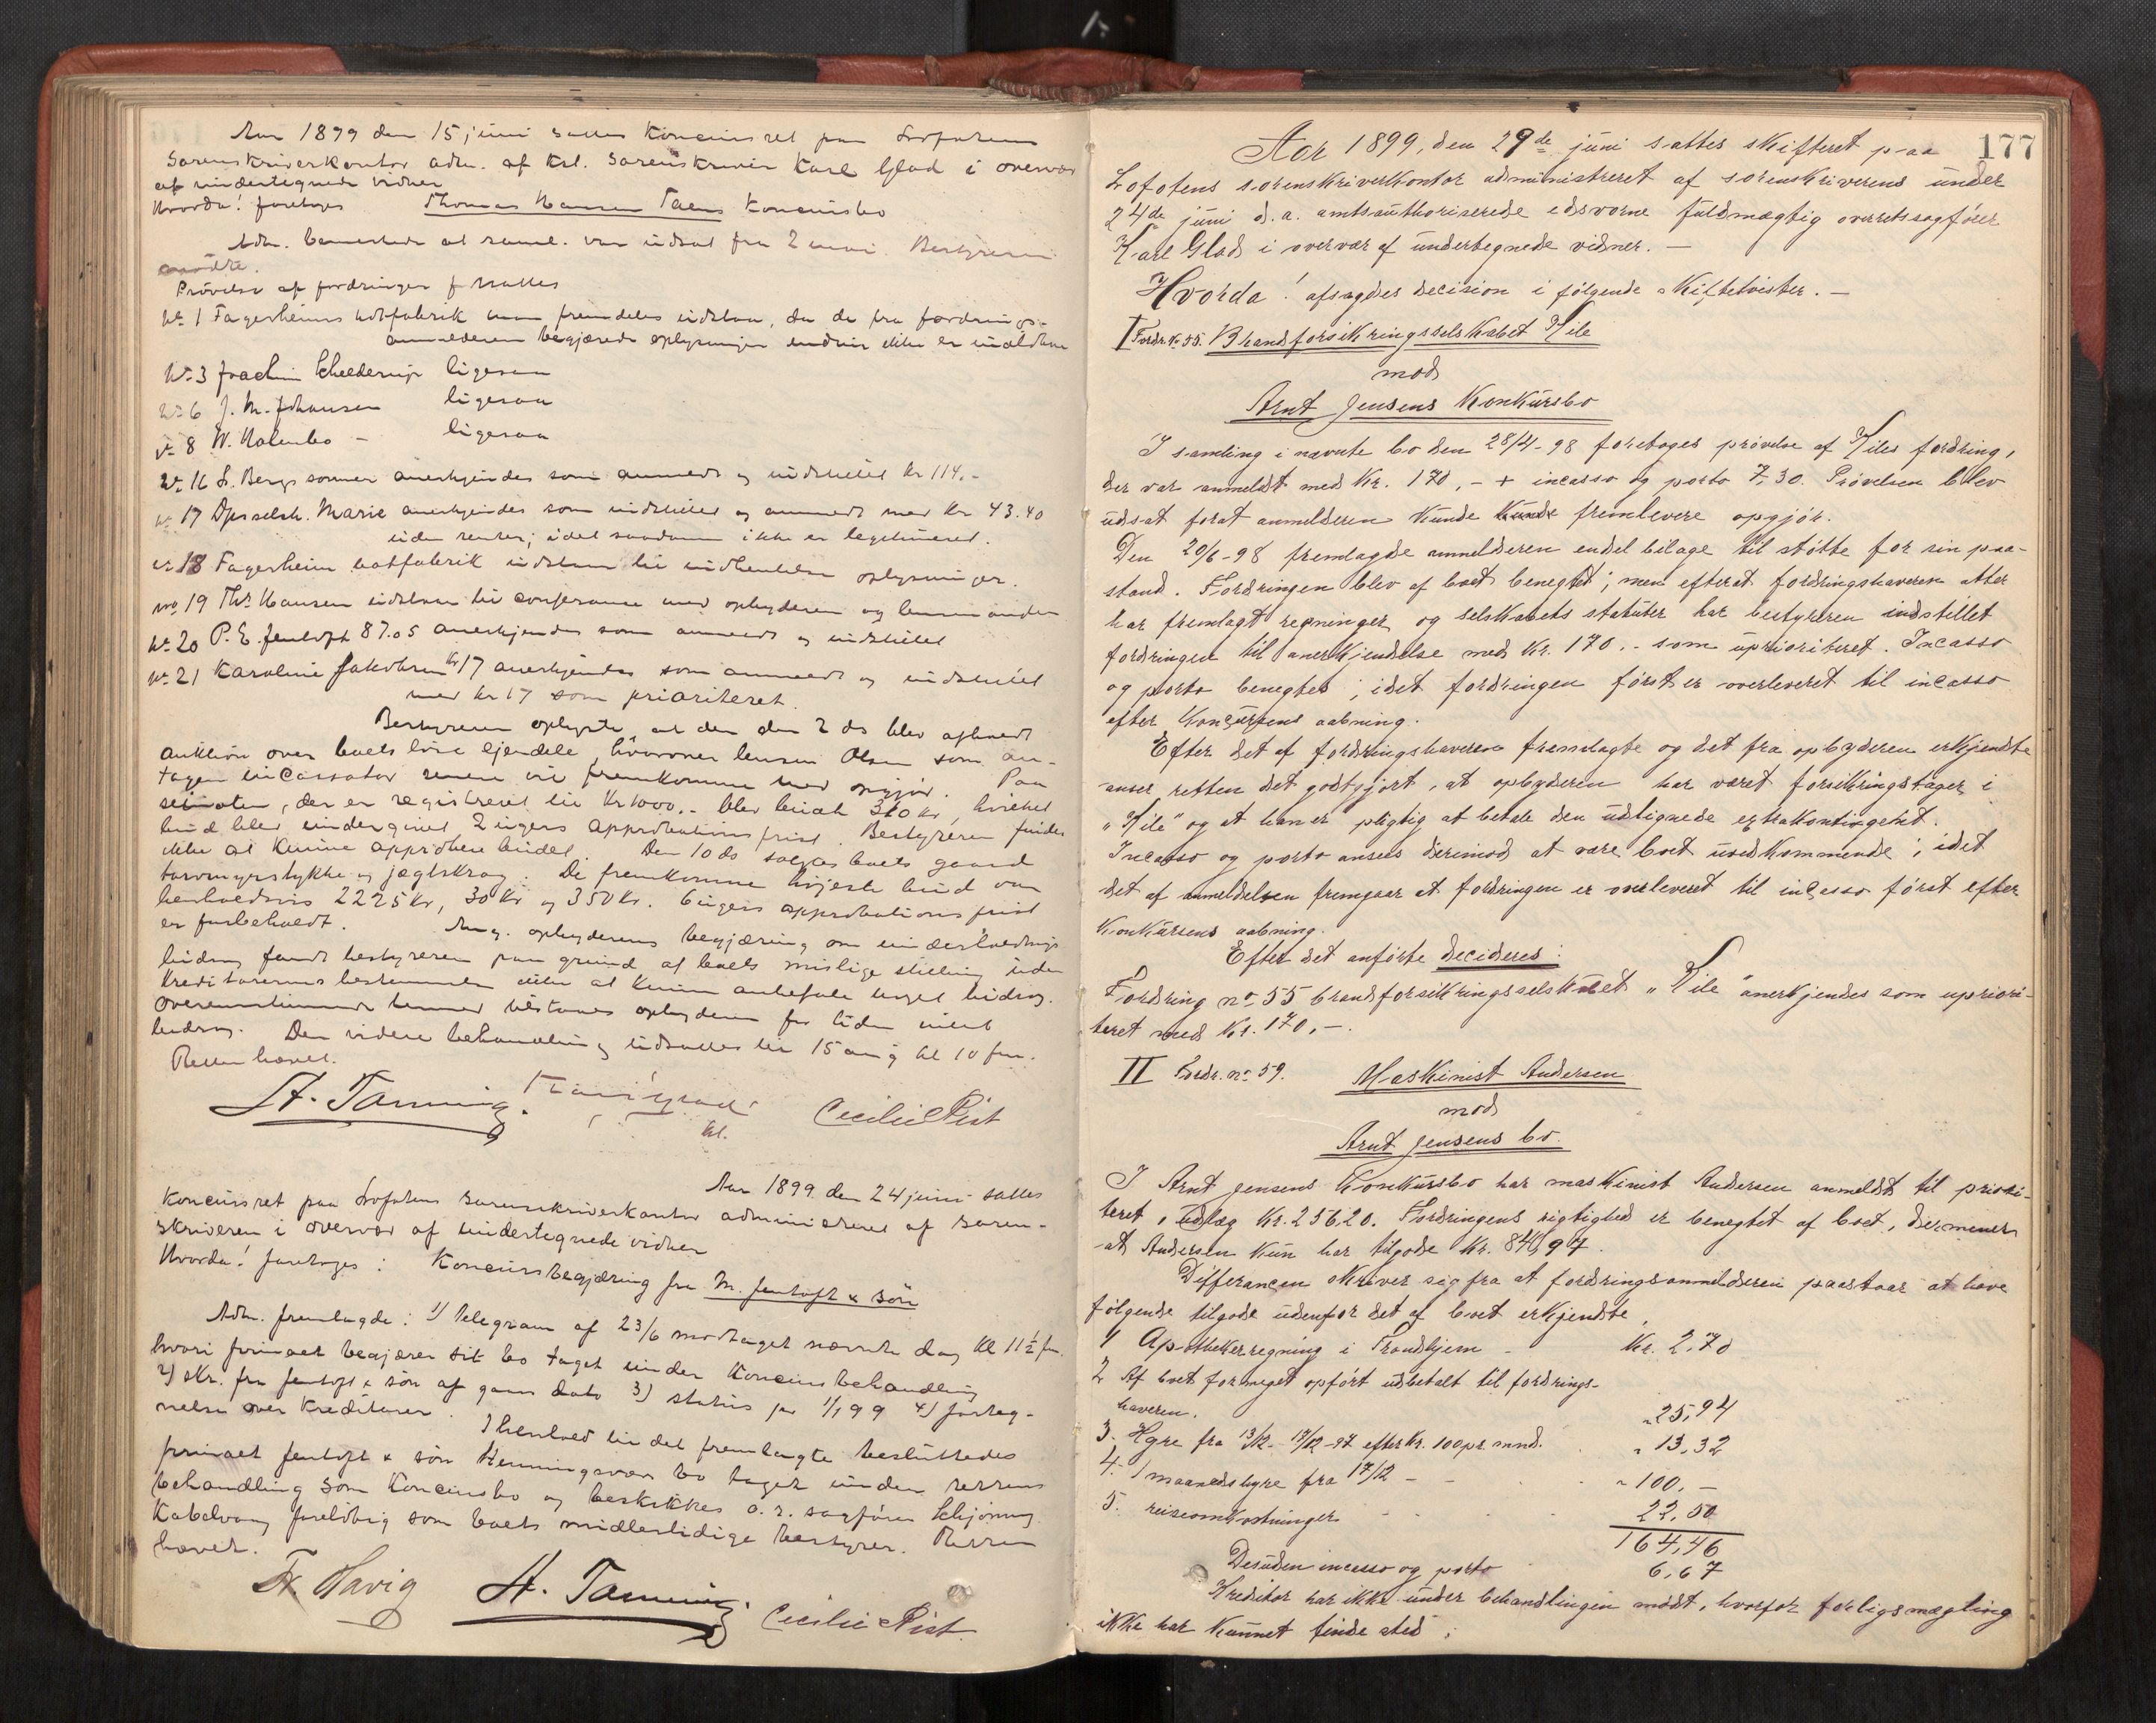 Aar 1899 den 15 juni sattes Koncursret paa Lofotens
Sorenskriverkontor adm. af kst. Sorenskriver Karl Glad i overvær
af undertegnede vidner
Hvorda! foretoges Thomas Hansen Koncursbo
Adm. bemærkede at saml. var udsat fra 2 mai. Bestyreren
mødte.
Prøvelse af fordringer fortsattes
No 1 Fagerheims fremdeles udstaa, da de fra fordrings-
anmelderen begjærede oplysninger endnu ikke er indløbne
No 3 Joachim Schelderup ligesaa
No 6 J. M. Johansen ligesaa
No 8 W. Holmbo - ligesaa
No 16 L. Bergs sønner anerkjendes som anmeldt og indstillet Kr 114.-
No 17 Dpsselsk. Marie anerkjendes som indstillet og anmeldt med Kr 43.40
uden renter; idet saadanne ikke er legitimeret.
No 18 Fagerheim notfabrik udstaar til indhentelse oplysninger.
No 19 Ths Hansen udstaar til conferance med opbyderen og lensmanden
No 20 P. E. Jentoft 87.05 anerkjendes som anmeldt og indstillet
No 21 Karoline Jakobsen Kr 17 anerkjendes som anmeldt og indstillet
med Kr 17 som prioriteret.
Bestyreren oplyste, at der den 2 ds blev afholdt
auktion over boets løse ejendele, hvorover lensm Olsen som an-
tagen incassator senere vil fremkomme med opgjør. Paa
, der er registreret til Kr 1000.- blev budt 310 Kr, hvilket
bud blev undergivet 2 ugers approbationsfrist. Bestyreren finder
ikke at kunne approbere budet. Den 10 ds solgtes boets gaard
torvmyrstykke og jægtskrog. De fremkomne højeste bud var
henholdsvis 2225 Kr, 30 Kr og 350 Kr. 6 ugers approbationsfrist
er forbeholdt. Ang. opbyderens begjæring om underholdnings-
bidrag fandt bestyreren paa grund af boets mislige stilling uden
Kreditorernes bestemmelse ikke at kunne anbefale noget bidrag.
Overensstemmende hermed tilstaaes opbyderen for tiden intet
bidrag. Den videre behandling udsattes til 15 aug kl 10 fm.
Retten hævet.
H. Tanning. Karl Glad Cecilie Rist
kst.
Aar 1899 den 24 juni sattes
Koncursret paa Lofotens Sorenskriverkontor administreret af soren-
skriveren i overvær af undertegnede vidner
Hvorda! foretoges: Koncursbegjæring fra M. Jentoft & Søn
Adm. fremlagde: 1) Telegram af 23/6 modtaget nævnte dag kl 11½ fm.
hvori firmaet begjærer sit bo taget under Koncursbehandling
2) skr. fra Jentoft & søn af gaars dato 3) status per 1/1 99 4) forteg-
nelse over Kreditorer. I henhold til det fremlagte besluttedes
firmaet Jentoft & søn Henningsvær bo taget under rettens
behandling som Koncursbo og beskikkes o.r. sagfører Schjøning
Kabelvaag foreløbig som boets midlertidige bestyrer. Retten
hævet.
Fr. Havig H. Tanning. Cecilie Rist.
177
Aar 1899, den 29de juni sattes skifteret paa
Lofotens sorenskriverkontor administreret af sorenskriverens under
24de juni d.a. amtsauthoriserede edsvorne fuldmægtig overretssagfører
Karl Glad i overvær af undertegnede vidner. -
Hvorda! afsagdes decision i følgende skiftetvister. -
I Fordr. No 55. Brandforsikringsselskabet Kile
mod
Arnt Jensens Konkursbo
I samling i nævnte bo den 28/4-98 foretoges prøvelse af Kiles fordring,
der var anmeldt med Kr. 170,- + incasso og porto 7,30. Prøvelsen blev
udsat forat anmelderen kunde kunde fremlevere opgjør.
Den 20/6-98 fremlagde anmelderen endel bilage til støtte for sin paa-
stand. Fordringen blev af boet benegtet; men efterat fordringshaveren atter
har fremlagt regninger og selskabets statuter har bestyreren indstillet
fordringen til anerkjendelse med Kr. 170.- som uprioriteret. Incasso
og porto benegtes; idet fordringen først er overleveret til incasso
efter Koncursens aabning.
Efter det af fordringshaveren fremlagte og det fra opbyderen erkjendte
anser retten det godtgjort, at opbyderen har været forsikringstager i
"Kile" og at han er pligtig at betale den udlignede extrakontingent.
Incasso og porto ansees derimod at være boet uvedkommende; idet
det af anmeldelsen fremgaar at fordringen er overleveret til incasso først efter
Konkursens aabning.
Efter det anførte decideres:
Fordring no 55 brandforsikringsselskabet "Kile" anerkjendes som upriori-
teret med Kr. 170,-.
II Fordr. no 59. Maskinist Andersen
mod
Arnt Jensens bo.
I Arnt Jensens Konkursbo har maskinist Andersen anmeldt til priori-
teret udlæg Kr. 256,20. Fordringens rigtighed er benegtet af boet, der mener
at Andersen kun har tilgode Kr. 84,97.
Differancen skriver sig fra at fordringsanmelderen paastaar at have
følgende tilgode udenfor det af boet erkjendte,
1 Apothekerregning i Trondhjem - Kr. 2,70
2 Af boet formeget opført udbetalt til fordrings-
haveren. " 25,94
3. Hyre fra 13/12 - 17/12-97 efter Kr. 100 pr mnd. " 13,32
4. 1 maanedshyre fra 17/12 - - " 100,-
5. reiseomkostninger 22,50
164,46
Desuden incasso og porto 6,67
Kreditor har ikke under behandlingen mødt, hvorfor forligsmægling
ikke har kunnet finde sted.